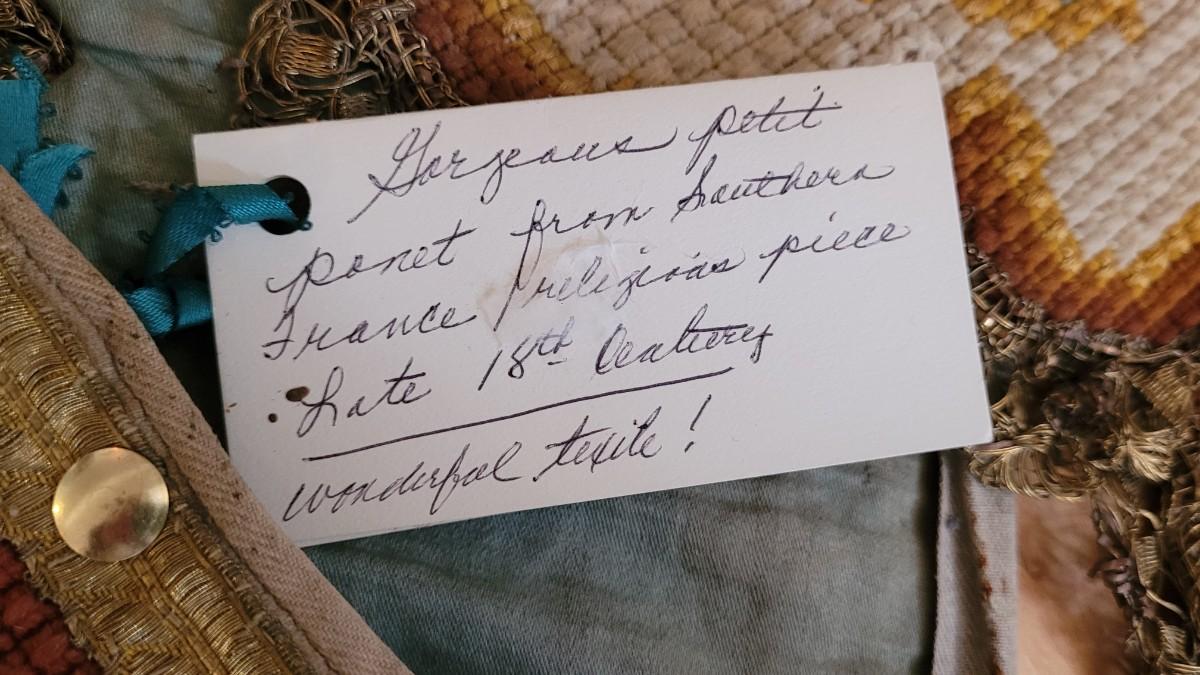 Gorgeous petit
ponet from Southern
France religious piece
Late 18th Century
wonderful texile!